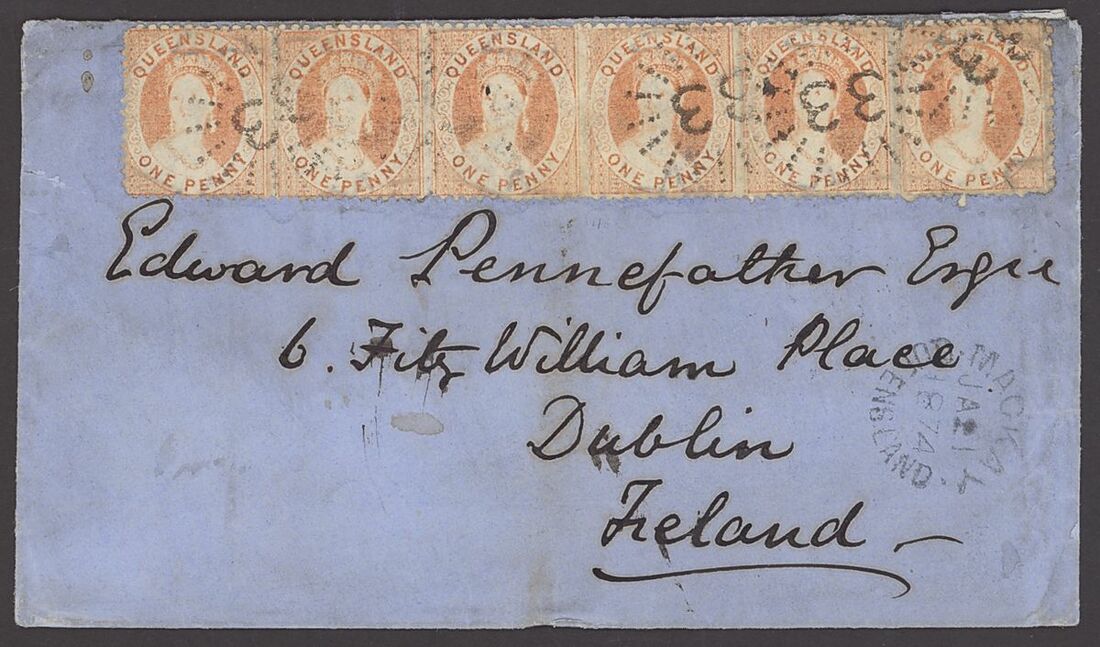 QUEENSLAND QUEENSLAND QUEENSLAND QUEENSLAND QUEENSLAND QUEENSLAND
ONE PENNY ONE PENNY ONE PENNY ONE PENNY ONE PENNY ONE PENNY
Edward Pennefather Esqre
6. Fitz William Place
Dublin
Ireland
MACKAY
JA
1874
QUEENSLAND